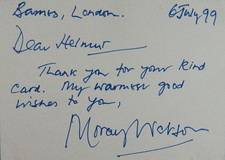 Barnes, London. 6 July 99
Dear Helmut
Thank you for your kind
card. My warmest good
wishes to you,
Moray Watson